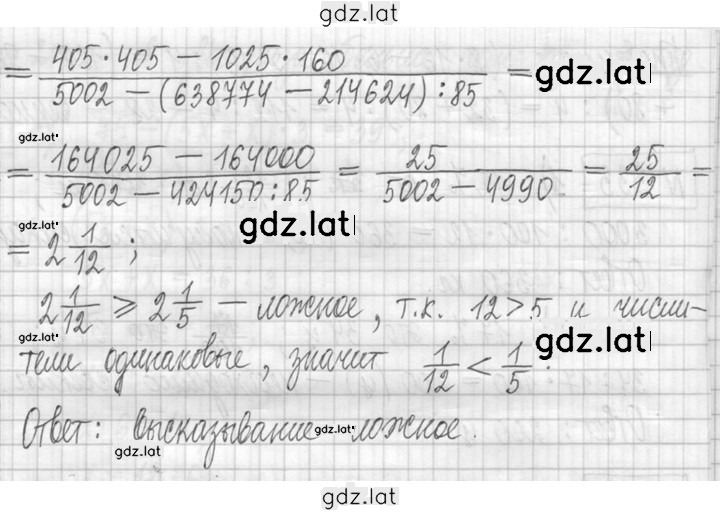 gdz.lat
= (405·405 − 1025·160)/(5002 − (638774 − 214624) : 85) =
gdz.lat
gdz.lat
= (164025 − 164000)/(5002 − 424150 : 85) = 25/(5002 − 4990) = 25/12 =
gdz.lat
= 2 1/12 ;
gdz.lat
2 1/12 ⩾ 2 1/5 – ложное, т.к. 12 > 5 и числи-
gdz.lat
тели одинаковые, значит 1/12 < 1/5.
gdz.lat
Ответ: высказывание ложное.
gdz.lat
gdz.lat
gdz.lat